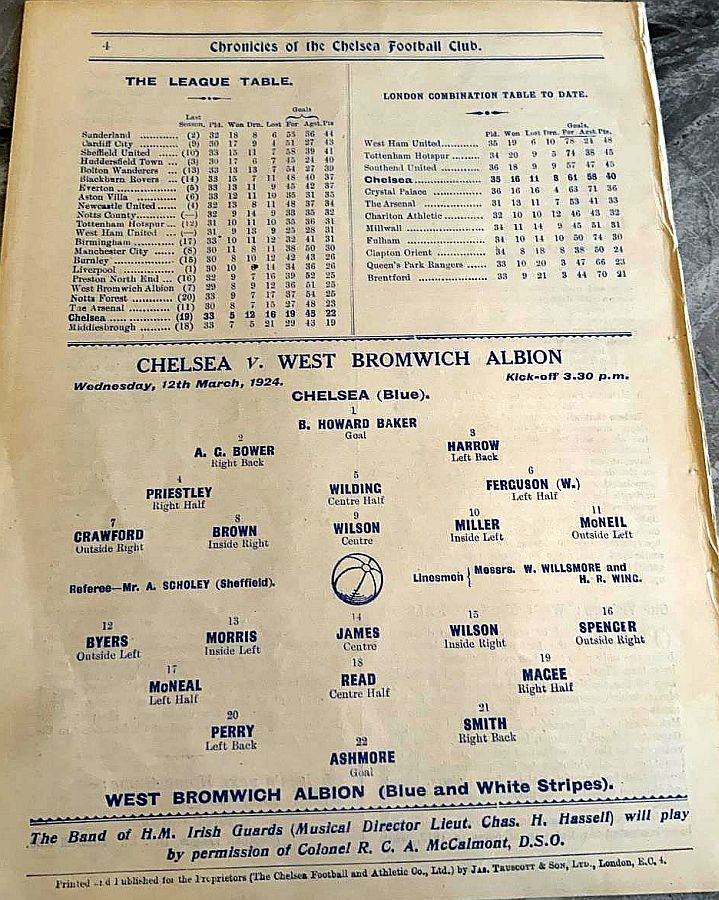 4 Chronicles of the Chelsea Football Club.
THE LEAGUE TABLE.
Goals
Last
Season. Pld. Won Drn. Lost For Agst. Pts
Sunderland ............ (2) 32 18 8 6 53 36 44
Cardiff City ............ (9) 30 17 9 4 51 27 43
Sheffield United ...... (10) 33 15 11 7 58 39 41
Huddersfield Town ... (3) 30 17 6 7 45 24 40
Bolton Wanderers ... (13) 33 13 13 7 54 27 39
Blackburn Rovers ... (14) 33 15 7 11 48 40 37
Everton ............... (5) 33 13 11 9 45 42 37
Aston Villa ............ (6) 32 12 11 10 35 31 35
Newcastle United ... (4) 32 13 8 11 48 37 34
Notts County......... (—) 32 9 14 9 33 35 32
Tottenham Hotspur ... (12) 31 10 11 10 35 36 31
West Ham United ... (—) 31 9 13 9 25 28 31
Birmingham ......... (17) 33 10 11 12 32 41 31
Manchester City ...... (8) 30 11 8 11 38 50 30
Burnley ............... (15) 30 8 10 12 42 43 26
Liverpool ............... (1) 30 10 14 34 36 26
Preston North End ... (16) 32 9 7 16 39 52 25
West Bromwich Albion (7) 29 8 9 12 36 51 25
Notts Forest ......... (20) 33 9 7 17 37 54 25
The Arsenal ......... (11) 30 8 7 15 27 48 23
Chelsea ............... (19) 33 5 12 16 19 45 22
Middlesbrough ...... (18) 33 7 5 21 29 43 19
LONDON COMBINATION TABLE TO DATE.
Goals.
Pld. Won Lost Drn. For Agst. Pts
West Ham United......... 35 19 6 10 78 24 48
Tottenham Hotspur...... 34 20 9 5 74 38 45
Southend United ......... 36 18 9 9 57 47 45
Chelsea..................... 35 16 11 8 61 58 40
Crystal Palace ............ 36 16 16 4 63 71 36
The Arsenal ............... 31 13 11 7 53 41 33
Charlton Athletic ......... 32 10 10 12 46 43 32
Millwall ..................... 34 11 14 9 45 51 31
Fulham ..................... 34 10 14 10 50 74 30
Clapton Orient ............ 34 8 18 8 38 50 24
Queen's Park Rangers ... 33 10 20 3 47 66 23
Brentford .................. 33 9 21 3 44 70 21
CHELSEA v. WEST BROMWICH ALBION
Wednesday, 12th March, 1924. Kick-off 3.30 p.m.
CHELSEA (Blue).
1
B. HOWARD BAKER
Goal
2 3
A. G. BOWER HARROW
Right Back Left Back
4 5 6
PRIESTLEY WILDING FERGUSON (W.)
Right Half Centre Half Left Half
7 8 9 10 11
CRAWFORD BROWN WILSON MILLER McNEIL
Outside Right Inside Right Centre Inside Left Outside Left
Referee—Mr. A. SCHOLEY (Sheffield). Linesmen { Messrs. W. WILLSMORE and
H. R. WING.
12 13 14 15 16
BYERS MORRIS JAMES WILSON SPENCER
Outside Left Inside Left Centre Inside Right Outside Right
17 18 19
McNEAL READ MAGEE
Left Half Centre Half Right Half
20 21
PERRY SMITH
Left Back Right Back
22
ASHMORE
Goal
WEST BROMWICH ALBION (Blue and White Stripes).
The Band of H.M. Irish Guards (Musical Director Lieut. Chas. H. Hassell) will play
by permission of Colonel R. C. A. McCalmont, D.S.O.
Printed and Published for the Proprietors (The Chelsea Football and Athletic Co., Ltd.) by JAS. TRUSCOTT & SON, LTD., London, E.C. 4.